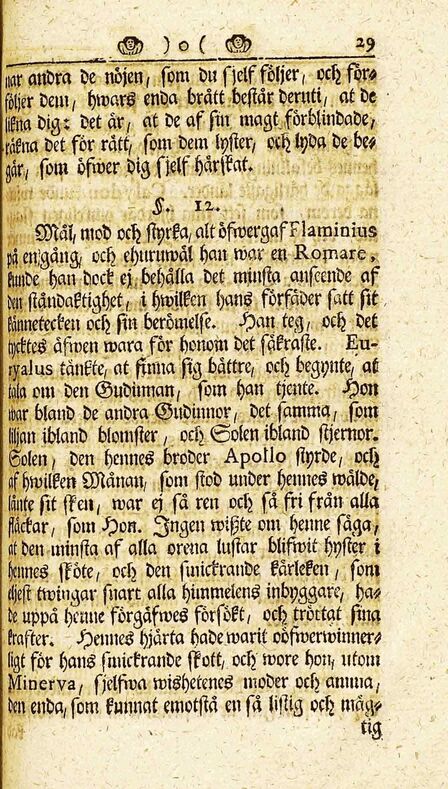 ) o ( 29
nar andra de nöjen, som du sjelf följer, och för-
följer dem, hwars enda brått består deruti, at de
likna dig: det är, at de af sin magt förblindade,
räkna det för rätt, som dem lyster, och lyda de be-
gär, som öfwer dig sjelf härskat.
§. 12.
Mål, mod och styrka, alt öfwergaf Flaminius
på en gång, och ehuruwäl han war en Romare,
kunde han dock ej behålla det minsta anseende af
den ståndaktighet, i hwilken hans förfäder satt sit
kännetecken och sin berömelse. Han teg, och det
tycktes äfwen wara för honom det säkraste. Eu-
ryalus tänkte, at finna sig bättre, och begynte, at
tala om den Gudinnan, som han tjente. Hon
war bland de andra Gudinnor, det samma, som
liljan ibland blomster, och Solen ibland stjernor.
Solen, den hennes broder Apollo styrde, och
af hwilken Månan, som stod under hennes wälde,
länte sit sken, war ej så ren och så fri från alla
fläckar, som Hon. Ingen wißte om henne säga,
at den minsta af alla orena lustar blifwit hyster i
hennes sköte, och den smickrande kärleken, som
eljest twingar snart alla himmelens inbyggare, ha-
de uppå henne förgäfwes försökt, och tröttat sina
krafter. Hennes hjärta hade warit oöfwerwinner-
ligt för hans smickrande skott, och wore hon, utom
Minerva, sjelfwa wishetenes moder och amma,
den enda, som kunnat emotstå en så listig och mäg-
tig